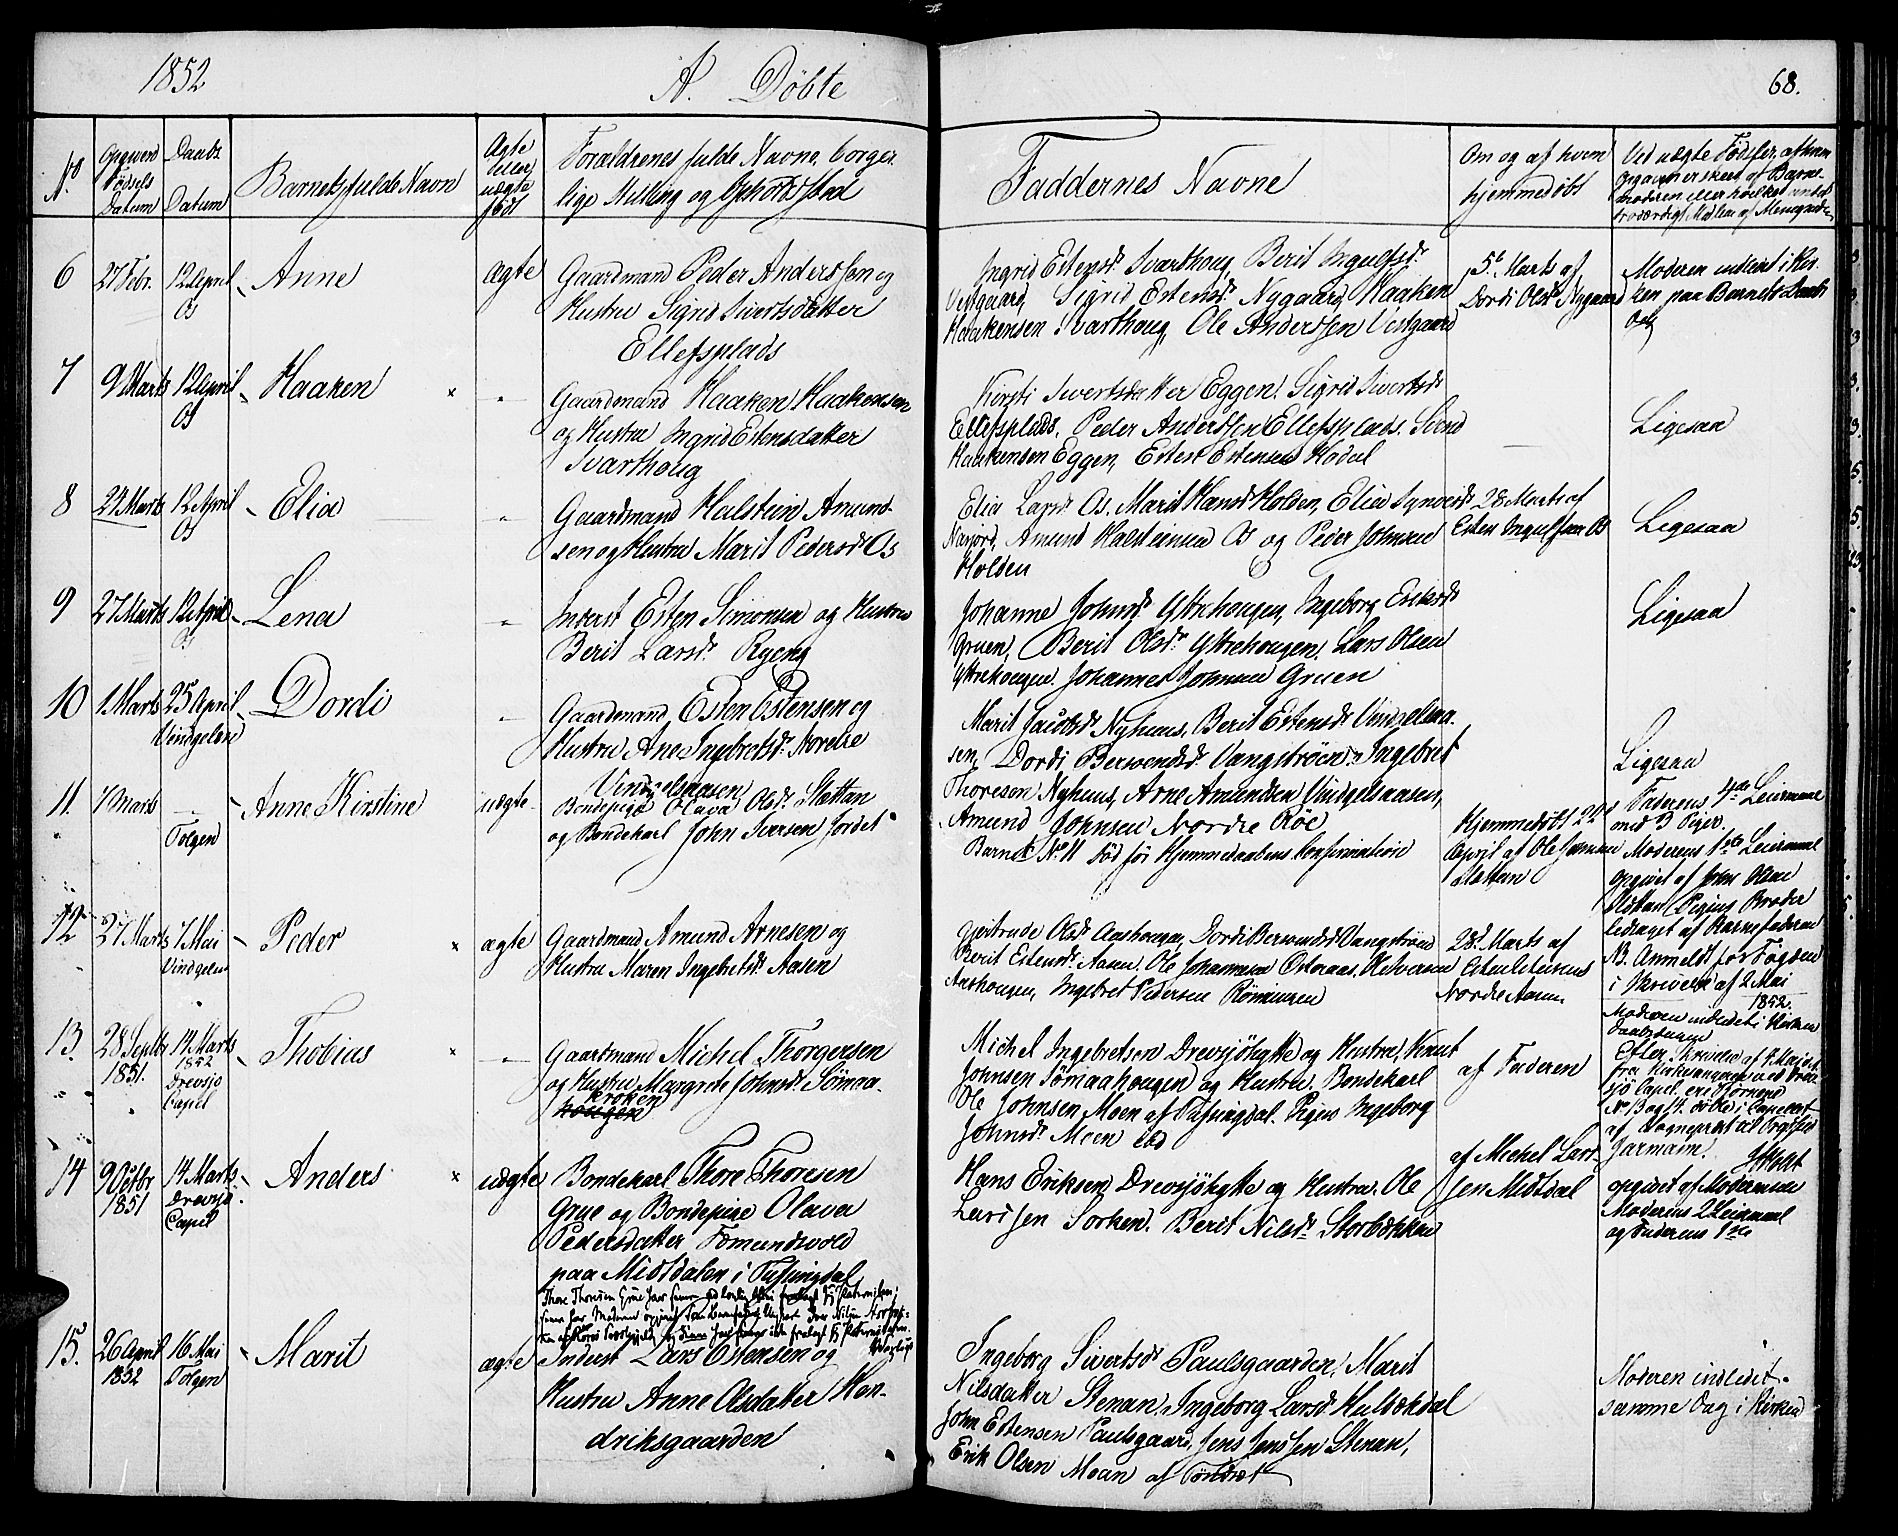 1852
A. Döbte
68.
No
Opgivend Födsels Datum
Daabs Datum
Barnets fulde Navn
Ægte eller uægte födt
Forældrenes fulde Navne, borger-
lige Stilling og Opholdssted
Faddernes Navne
Om og af hvem
hjemmedöbt
Ved uægte Födsler, af hvem
6 27 Febr. 12 April Os Anne ægte
Gaardmand Peder Anderssen og
Hustru Sigrid Sivertsdatter
Ellefsplads
Ingrid Estensdr Svarthoug, Berit Ingulfsdr
Vestgaard, Sigrid Estensdr Nygaard, Haaken
Haakensen Svarthoug, Ole Anderssen Vestgaard
5te Marts af
Dordi Olsdr Nygaard
Moderen indledt i Kir-
ken paa Barnets Daabs
Dag
7 9 Marts 12 April Os Haaken
Gaardmand Haaken Haakensen
og Hustru Ingrid Estensdatter
Svarthoug
Kirsti Sivertsdatter Eggen, Sigrid Sivertsdr
Ellefsplads, Peder Anderssen Ellefsplads, Svend
Haakensen Eggen, Esten Estensen Hodal
Ligesaa
8 24 Marts 12 April Os Elia
Gaardmand Halstein Amund-
sen og Hustru Marit Pedersdr Os
Elia Larsdr Os, Marit Hansdr Holden, Elia
Narjord, Amund Halsteinsen Os og Peder Johnsen
Holden
28 Marts af
Esten Ingulfsen Os
Ligesaa
9 27 Marts 12 April Os Lena
Inderst Esten Simonsen og Hustru
Berit Larsdr Ryeng
Johanne Johnsdr Yttrehougen, Ingeborg Eriksdr
Gruen, Berit Olsdr Yttrehougen, Lars Olsen
Yttrehougen, Johannes Johnsen Gruen
Ligesaa
10 1 Marts 25 April Vindgelen Dordi
Gaardmand Esten Estensen og
Hustru Ane Ingebretsdr Nordre
Vindgelsaasen
Marit Jacobsdr Nyhuus, Berit Estensdr Vindgelsaa-
sen, Dordi Bersvendsdr Vangströen, Ingebret
Thoresen Nyhuus, Arne Amundsen Vindgelsaasen,
Amund Johnsen Nordre Röe
Ligesaa
11. 7 Marts Tolgen Anne Kirstine uægte
Bondepige Olava Olsdr Slettan
og Bondekarl John Ivarsen Jordet
Barnet No 11 död för Hjemmedaabens Confirmation
Hjemmedöbt 22de
April af Ole Jonsen
Slettan
Faderens 4de Leiermaal
med 3 Piger.
Moderens 1ste Leiermaal
opgivet af John Olsen
Slettan Pigens Broder
ledsaget af Barnefaderen
NB. Anmeldt for Fogden
i Skrivelse af 2 Mai
1852.
12 27 Marts 7 Mai Vindgelen Peder ægte
Gaardmand Amund Arnesen og
Hustru Maren Ingebretsdr Aasen
Gjertrude Olsdr Aashougen, Dordi Bersvendsdr Vangströen
Berit Estensdr Aasen, Ole Johannesen Osteraas, Ole Iversen
Aashougen, Ingebret Pedersen Röningen
28de Marts af
Esten Estensen
Nordre Aasen
Moderen indledet i Kirken
Daabsdagen
13. 28 Septbr 1851. 14 Marts 1852 Drevsjö Capel Thobias
Gaardmand Michel Thorgersen
og Hustru Margrete Johnsdr Sömaa-
kroken
hougen
Michel Ingebretsen Drevsjöhytte og Hustru, Knut
Johnsen Sömaahougen og Hustru. Bondekarl
Ole Johnsen Moen af Tufsingdal. Pigen Ingeborg
Johnsdr Moen ibd
af Faderen
14 9 Octbr 1851 14 Marts Drevsjö Capel Anders uægte
Bondekarl Thore Thoresen
Grue og Bondepige Olava
Pedersdatter Fæmundsvold
paa Midtdalen i Tufsingdal
Hans Eriksen Drevsjöhytte og Hustru. Ole
Larssen Sorken. Berit Nilsdr Storbækken
af Michel Lars-
sen Midtdal
opgivet af Moderen
Moderens 2 Leiermaal
og Faderens 1ste
15. 26 April 1852 16 Mai Tolgen Marit ægte
Inderst Lars Estensen og
Hustru Anne Olsdatter Hen-
driksgaarden
Ingeborg Sivertsdr Paulsgaarden, Marit
Nilsdatter Stenan, Ingeborg Larsdr Hulbækdal
John Estensen Paulsgaard, Jens Jenssen Stenan,
Erik Olsen Moan af Tönset
Moderen indledet
samme Dag i Kirken